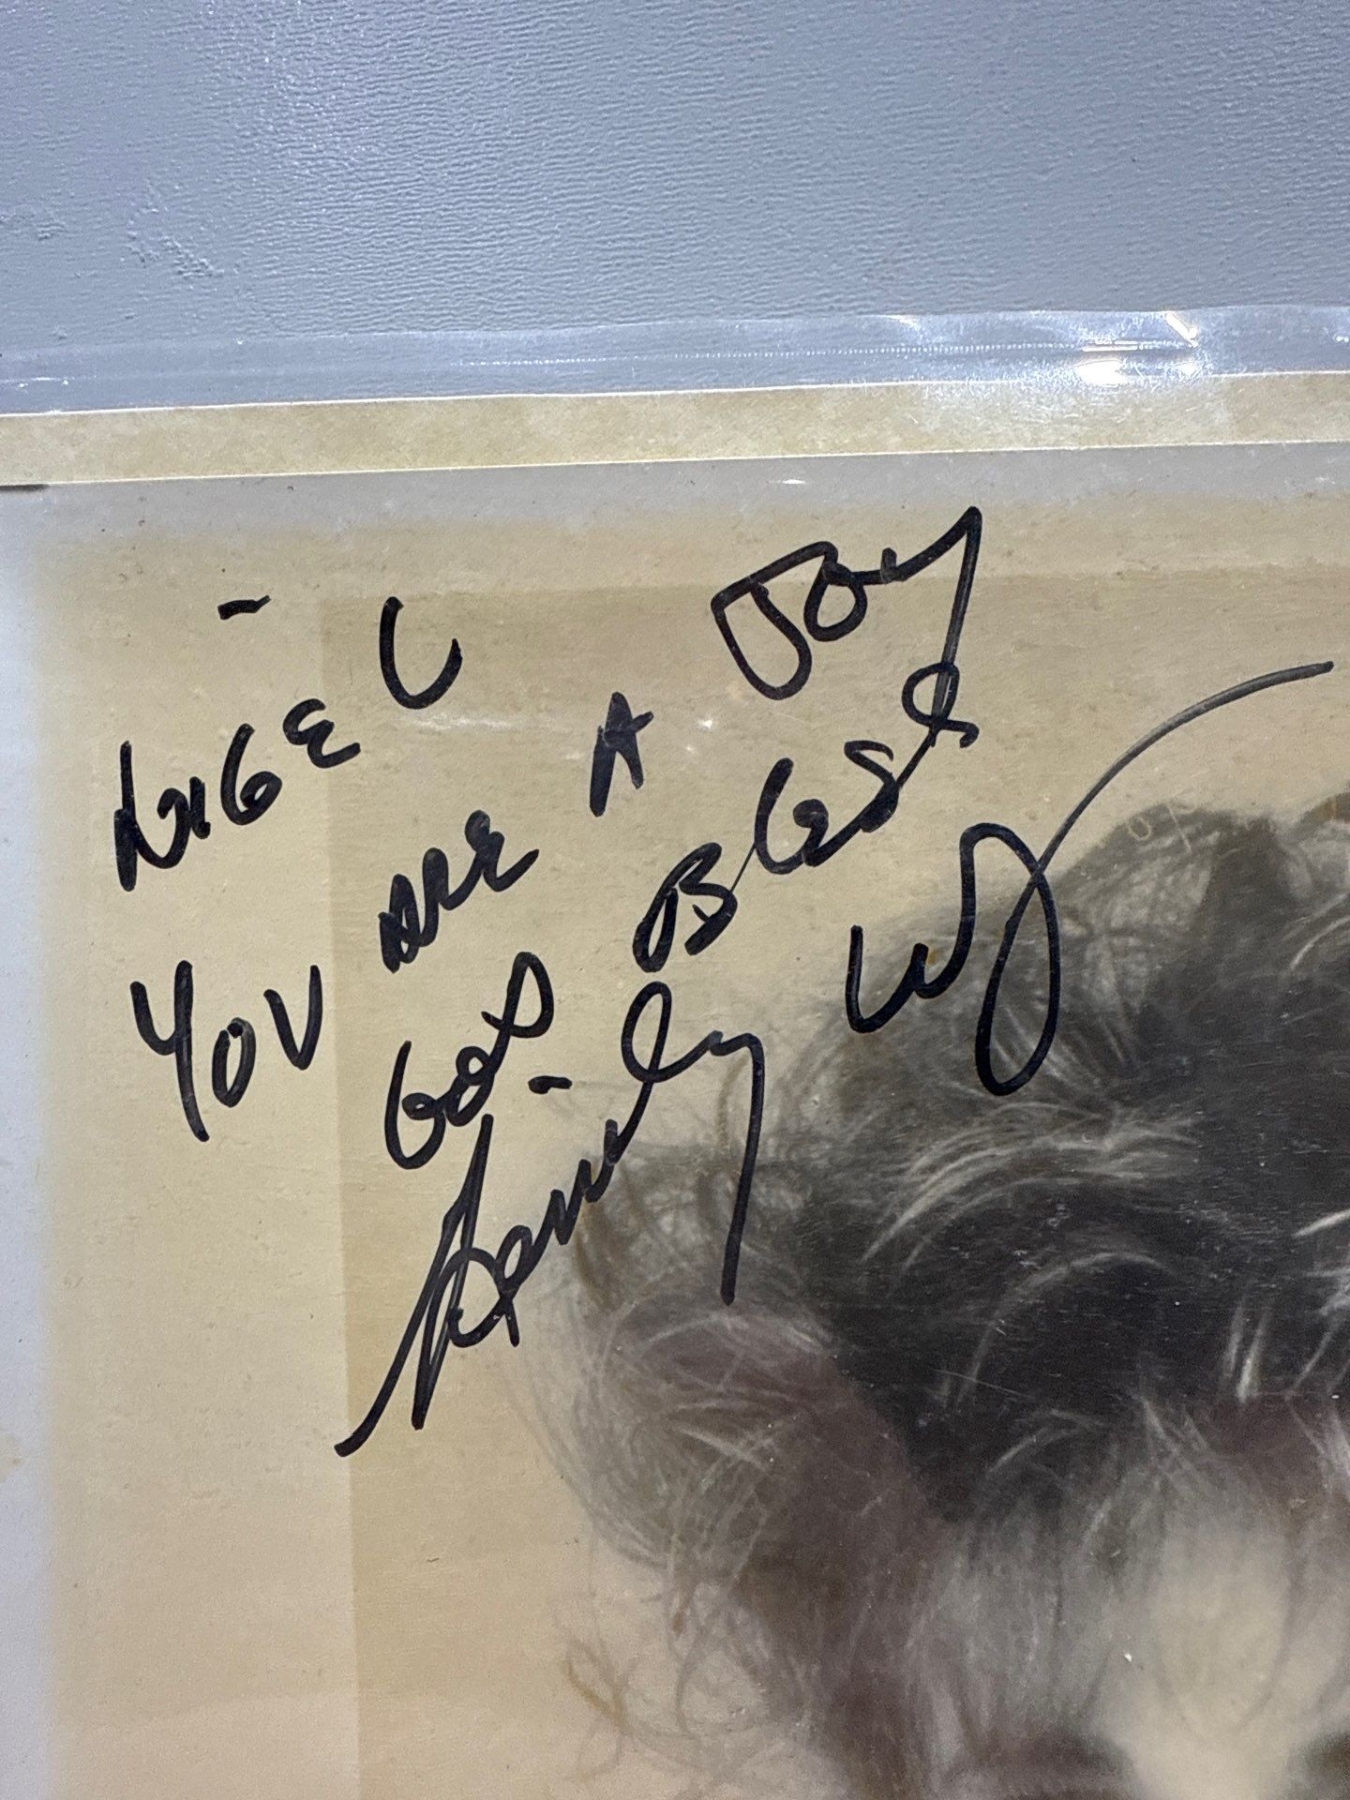 NIGEL
YOU ARE A JOY
GOD BLESS